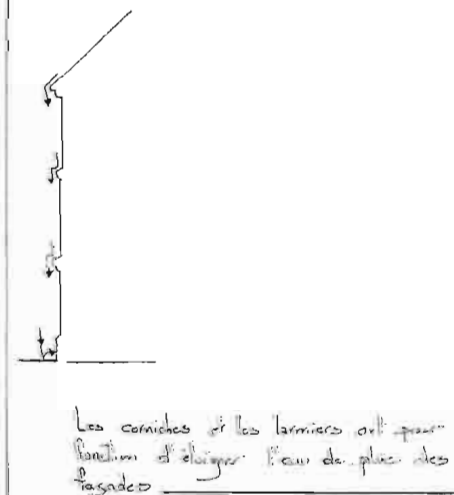 Les corniches et les larmiers ont pour
fonction d'éloigner l'eau de pluie des
façades